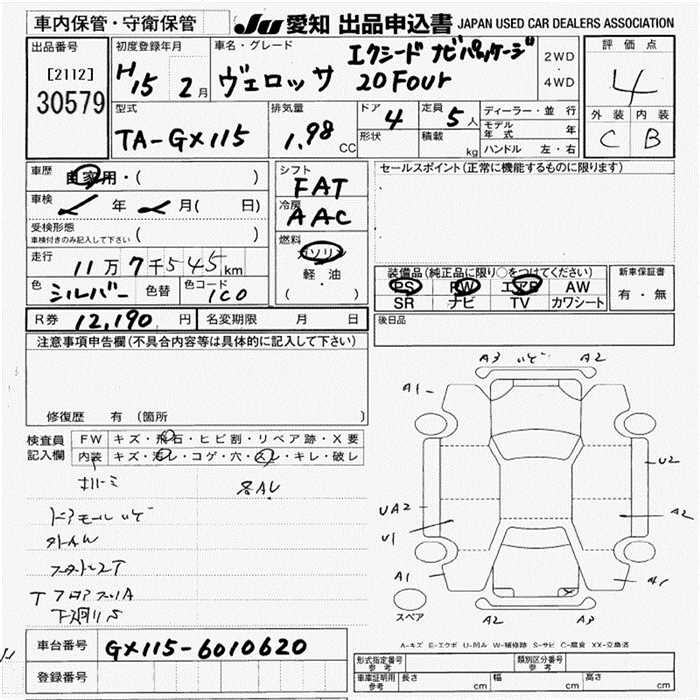 車内保管・守衛保管
JU 愛知 出品申込書 JAPAN USED CAR DEALERS ASSOCIATION
出品番号
[2112]
30579
初度登録年月
H15 2月
車名・グレード
エクシード ナビパッケージ
ヴェロッサ 20Four
2WD
4WD
評価点
4
外装 内装
C B
型式
TA-GX115
排気量
1.98 CC
ドア 4
形状
定員 5人
積載 kg
ディーラー・並行
モデル年式 年
ハンドル 左・右
車歴
自家用・( )
車検 年 月( 日)
受検形態
車検付きのみ記入して下さい ( )
走行
11万7千545km
色 シルバー 色替 色コード 1C0
シフト
FAT
冷房
AAC
燃料
ガソリン
軽・油
( )
セールスポイント(正常に機能するものに限ります)
装備品(純正品に限り○をつけてください)
PS PW エアB AW
SR ナビ TV カワシート
新車保証書
有・無
R券 12,190円 名変期限 月 日
後日品
注意事項申告欄(不具合内容等は具体的に記入して下さい)
修復歴 有 (箇所 )
検査員記入欄
FW キズ・飛石・ヒビ割・リペア跡・X要
内装 キズ・汚レ・コゲ・穴・スレ・キレ・破レ
A3 A2
A1
U2
UA2
U1
A2
A1
スペア
A2 A3
A-キズ E-エクボ U-凹み W-補修跡 S-サビ C-腐食 XX-交換済
車台番号 GX115-6010620
登録番号
形式指定番号 参考
類別区分番号 参考
車庫証明用 参考 長さ cm 幅 cm 高さ cm